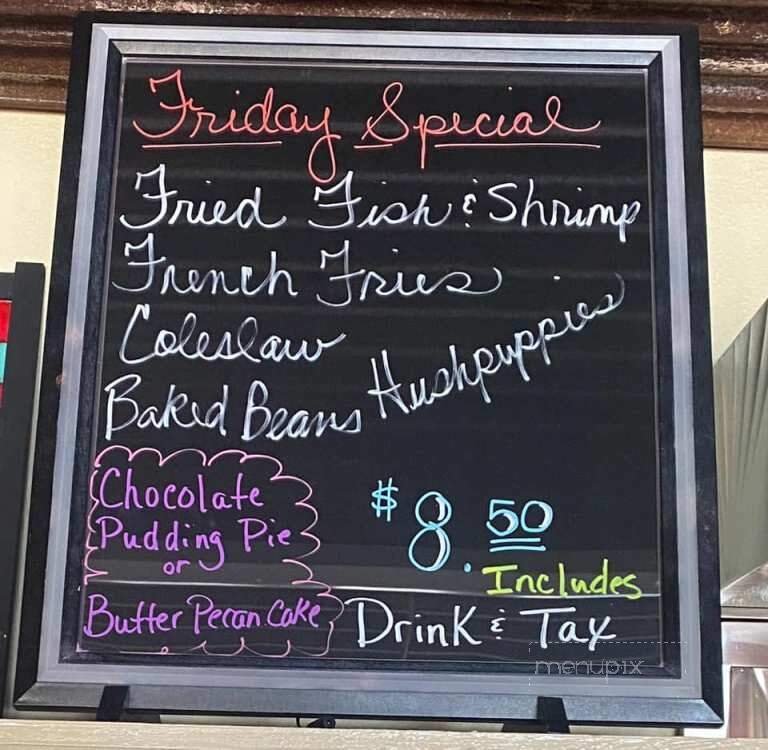 Friday Special
Fried Fish & Shrimp
French Fries
Coleslaw
Hushpuppies
Baked Beans
Chocolate
Pudding Pie
or
Butter Pecan Cake
$8.50
Includes
Drink & Tax
menupix